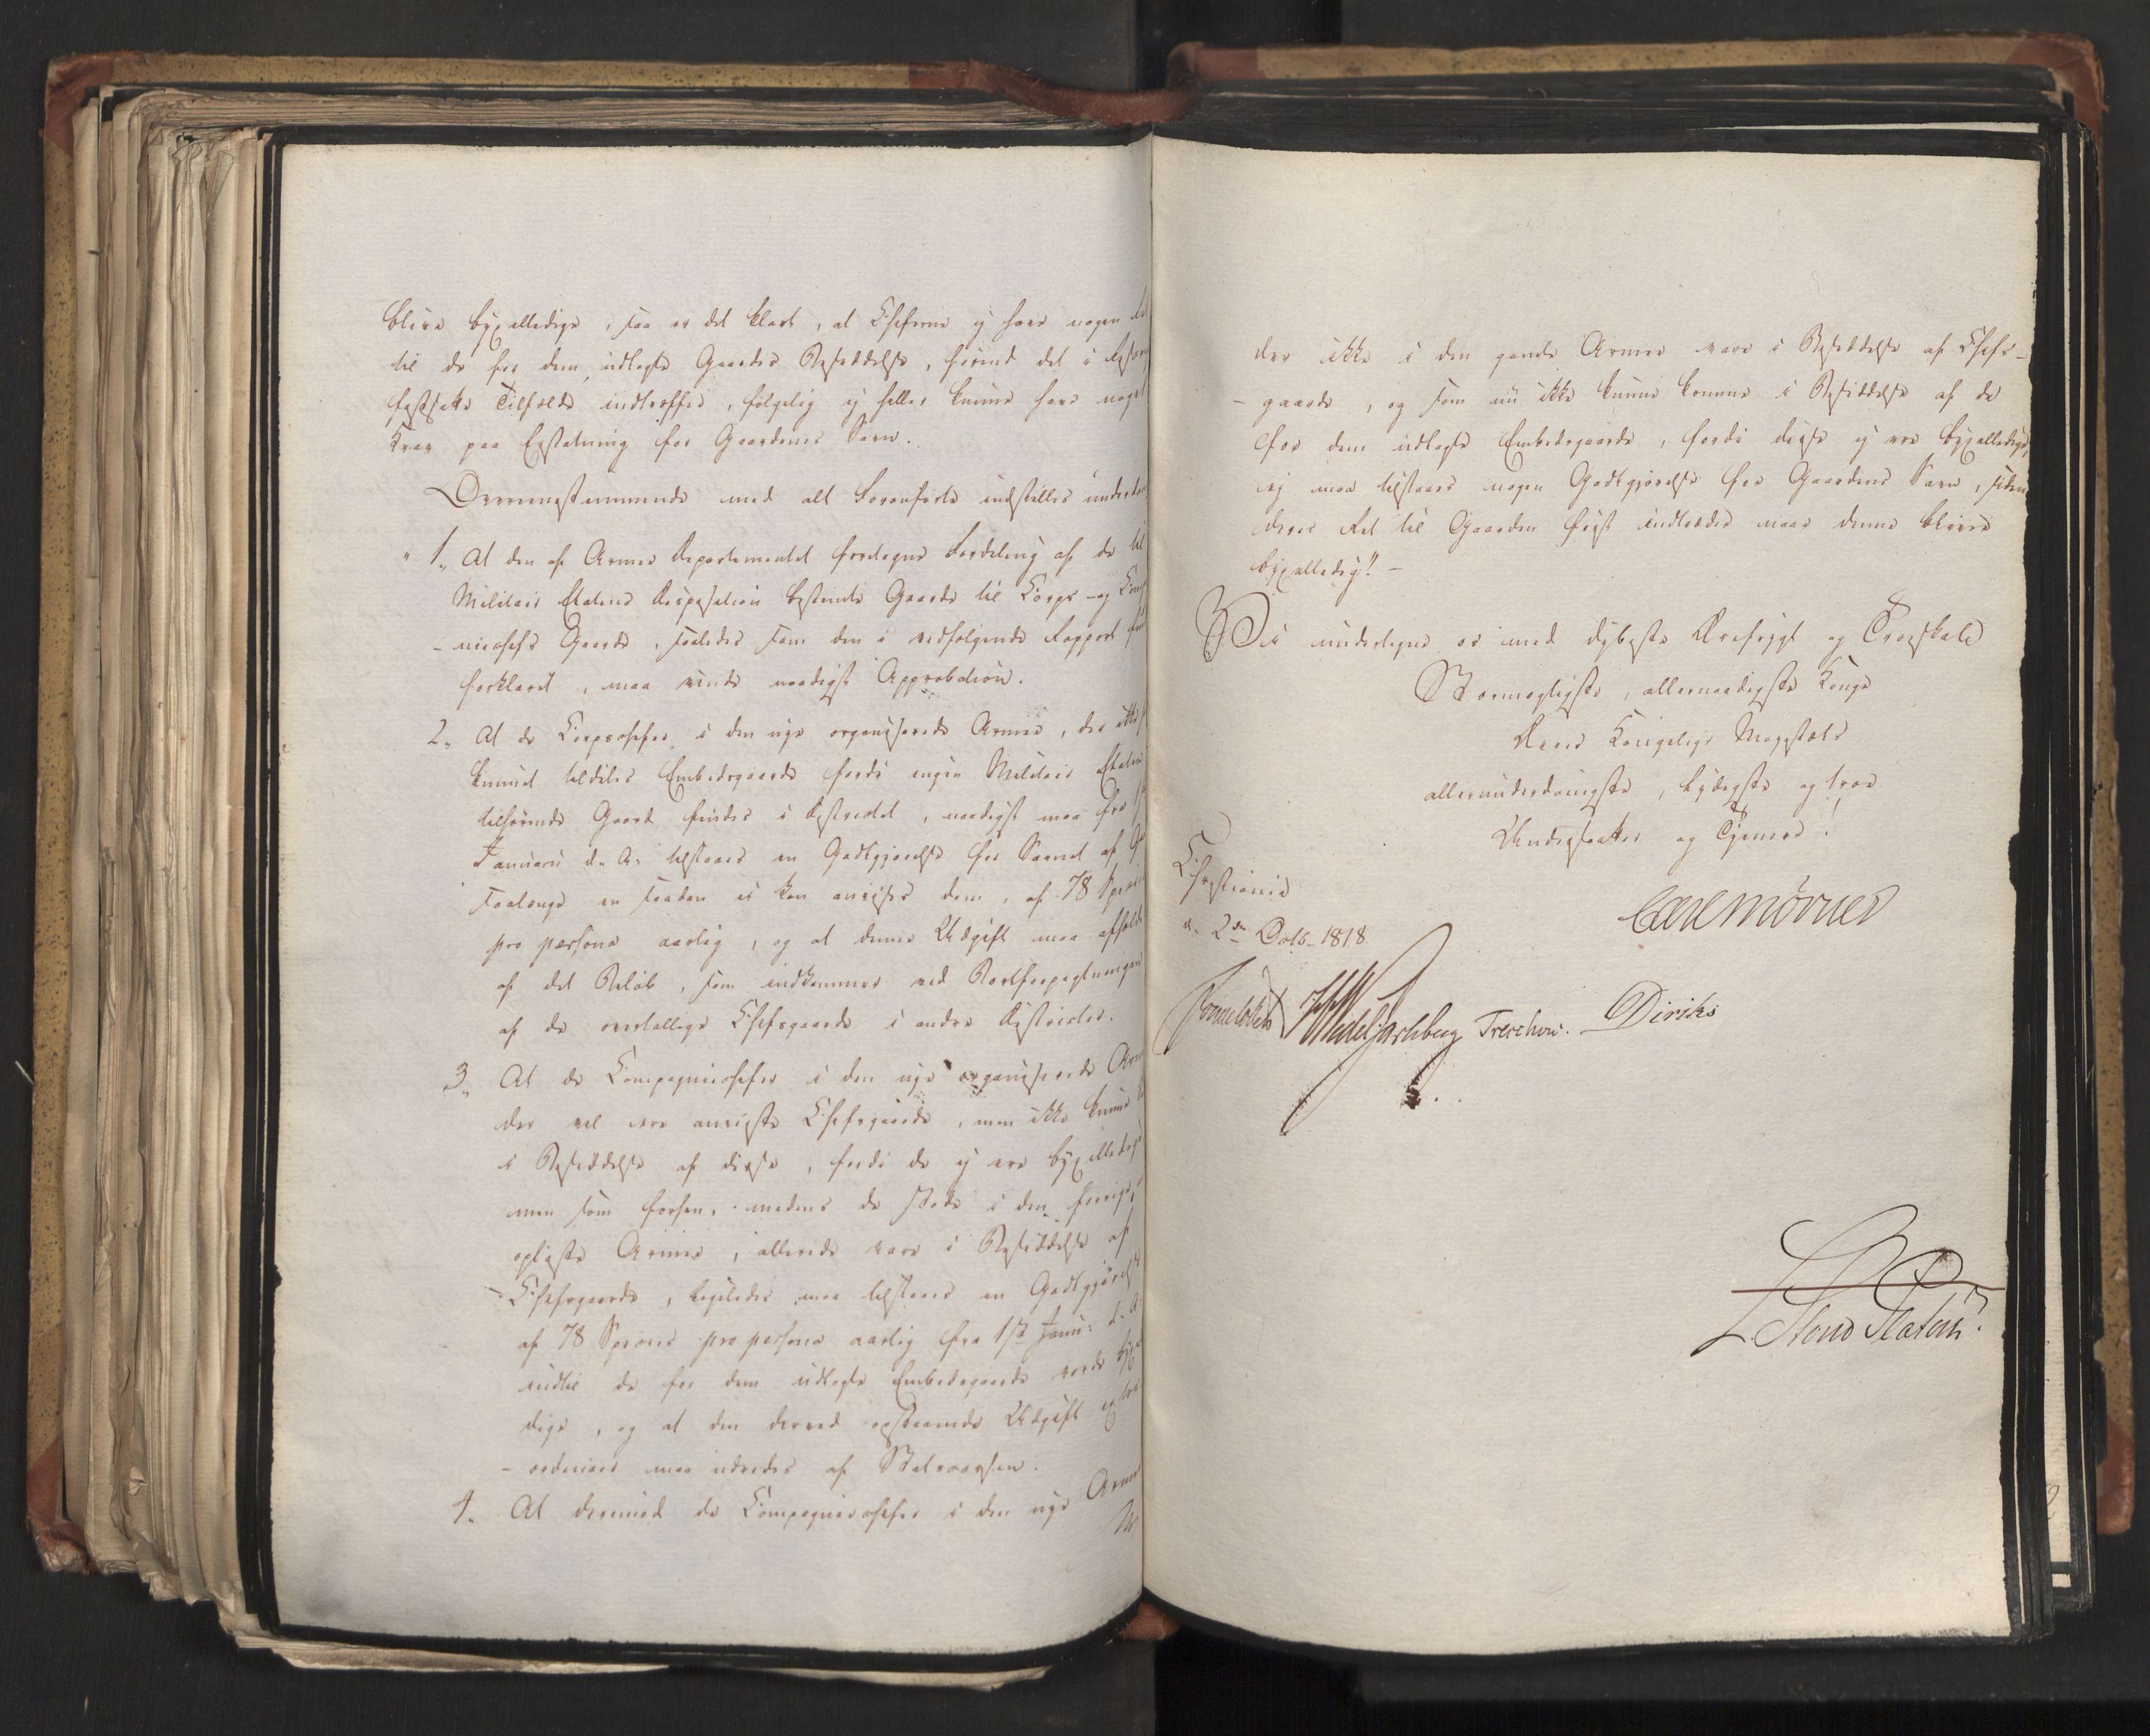 blive byxelledige, saa er det klart, at Cheferne ej have nogen Ret
til de for dem udlagte Gaardes Besiddelse, førend det i
fastsatte Tilfælde indtræffer, følgelig ej heller kunne have noget
Krav paa Erstatning for Gaardenes Savn.
Overeensstemmende med alt Foranførte indstilles
1, At den af Armee Departementet foretagne Fordeling af de til
Militair Etatens Disposition bestemte Gaarde til Corps- og
-niechefs Gaarde, saaledes som den i vedfølgende Rapport
forklaret, maa vinde naadigst Approbation.
2, At de Corpschefer i den nye organiserede Armee, der ikke
kunnet tildeles Embedsgaarde fordi ingen Militair Etaten
tilhørende Gaard findes i Districtet, naadigst maa fra 1ste
Januarii d. A. tilstaaes en Godtgjørelse for Savnet af
saalænge en saadan ei kan anvises dem, af 78 Species
pro persona aarlig, og at denne Udgift maa afholdes
af det Beløb, som indkommer ved Bortforpagtningen
af de overtallige Chefsgaarde i andre Districter.
3, At de Compagniechefer i den nye organiserede Armee
der vel ere anviste Chefsgaarde, men ikke kunne
i Besiddelse af disse, fordi de ej ere byxelledige
men som forhen, medens de stode i den forrige,
opløste Armee, allerede vare i Besiddelse af
Chefsgaarde, ligeledes maa tilstaaes en Godtgjørelse
af 78 Species pro persona aarlig fra 1ste Janu: d. A.
indtil de for dem udlagte Embedsgaarde vorde
dige, og at den derved opstaaende Udgift extra
-ordinair maa udredes af Statscassen.
4, At derimod de Compagniechefer i den nye Armee
der ikke i den gamle Armee vare i Besiddelse af Chefs-
-gaarde, og som nu ikke kunne komme i Besiddelse af de
for dem udlagte Embedsgaarde, fordi disse ej ere byxelledige,
ej maa tilstaaes nogen Godtgjørelse for Gaardens Savn, siden
deres Ret til Gaarden først indtræder naar denne bliver
byxelledig." -
Vi undertegne os med dybeste Ærefrygt og Troeskab
Stormægtigste, allernaadigste Konge
Deres Kongelige Majestæts
allerunderdanigste, lydigste og troe
Undersaatter og Tjenere!
Christiania
d. 2den Octb. 1818
Carl Mörner
Sommerhielm HWedel Jarlsberg Treschow. Diriks
L. Stoud Platou.